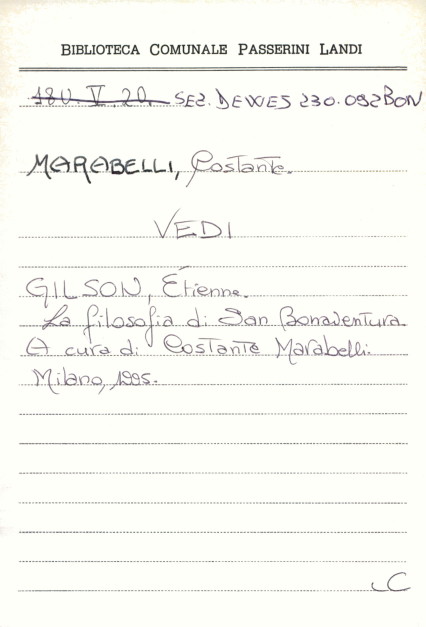 BIBLIOTECA COMUNALE PASSERINI LANDI
180. V. 20. SEZ. DEWES 230.092BON
MARABELLI, Costante.
VEDI
GILSON, Étienne.
La filosofia di San Bonaventura.
A cura di Costante Marabelli.
Milano, 1995.
C